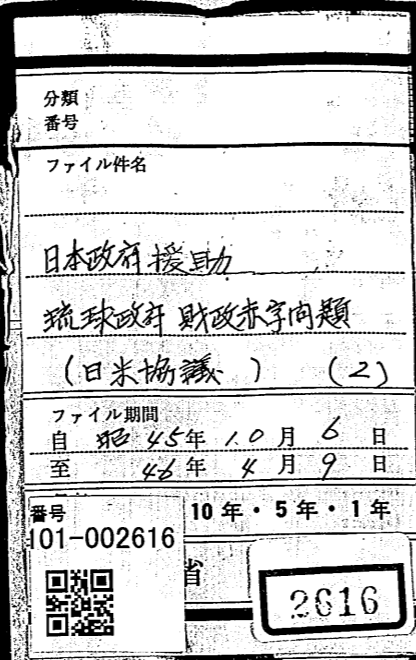 分類
番号
ファイル件名
日本政府援助
琉球政府財政赤字問題
(日米協議) (2)
ファイル期間
自 昭45年10月6日
至 46年4月9日
10年・5年・1年
番号
101-002616
省
2616